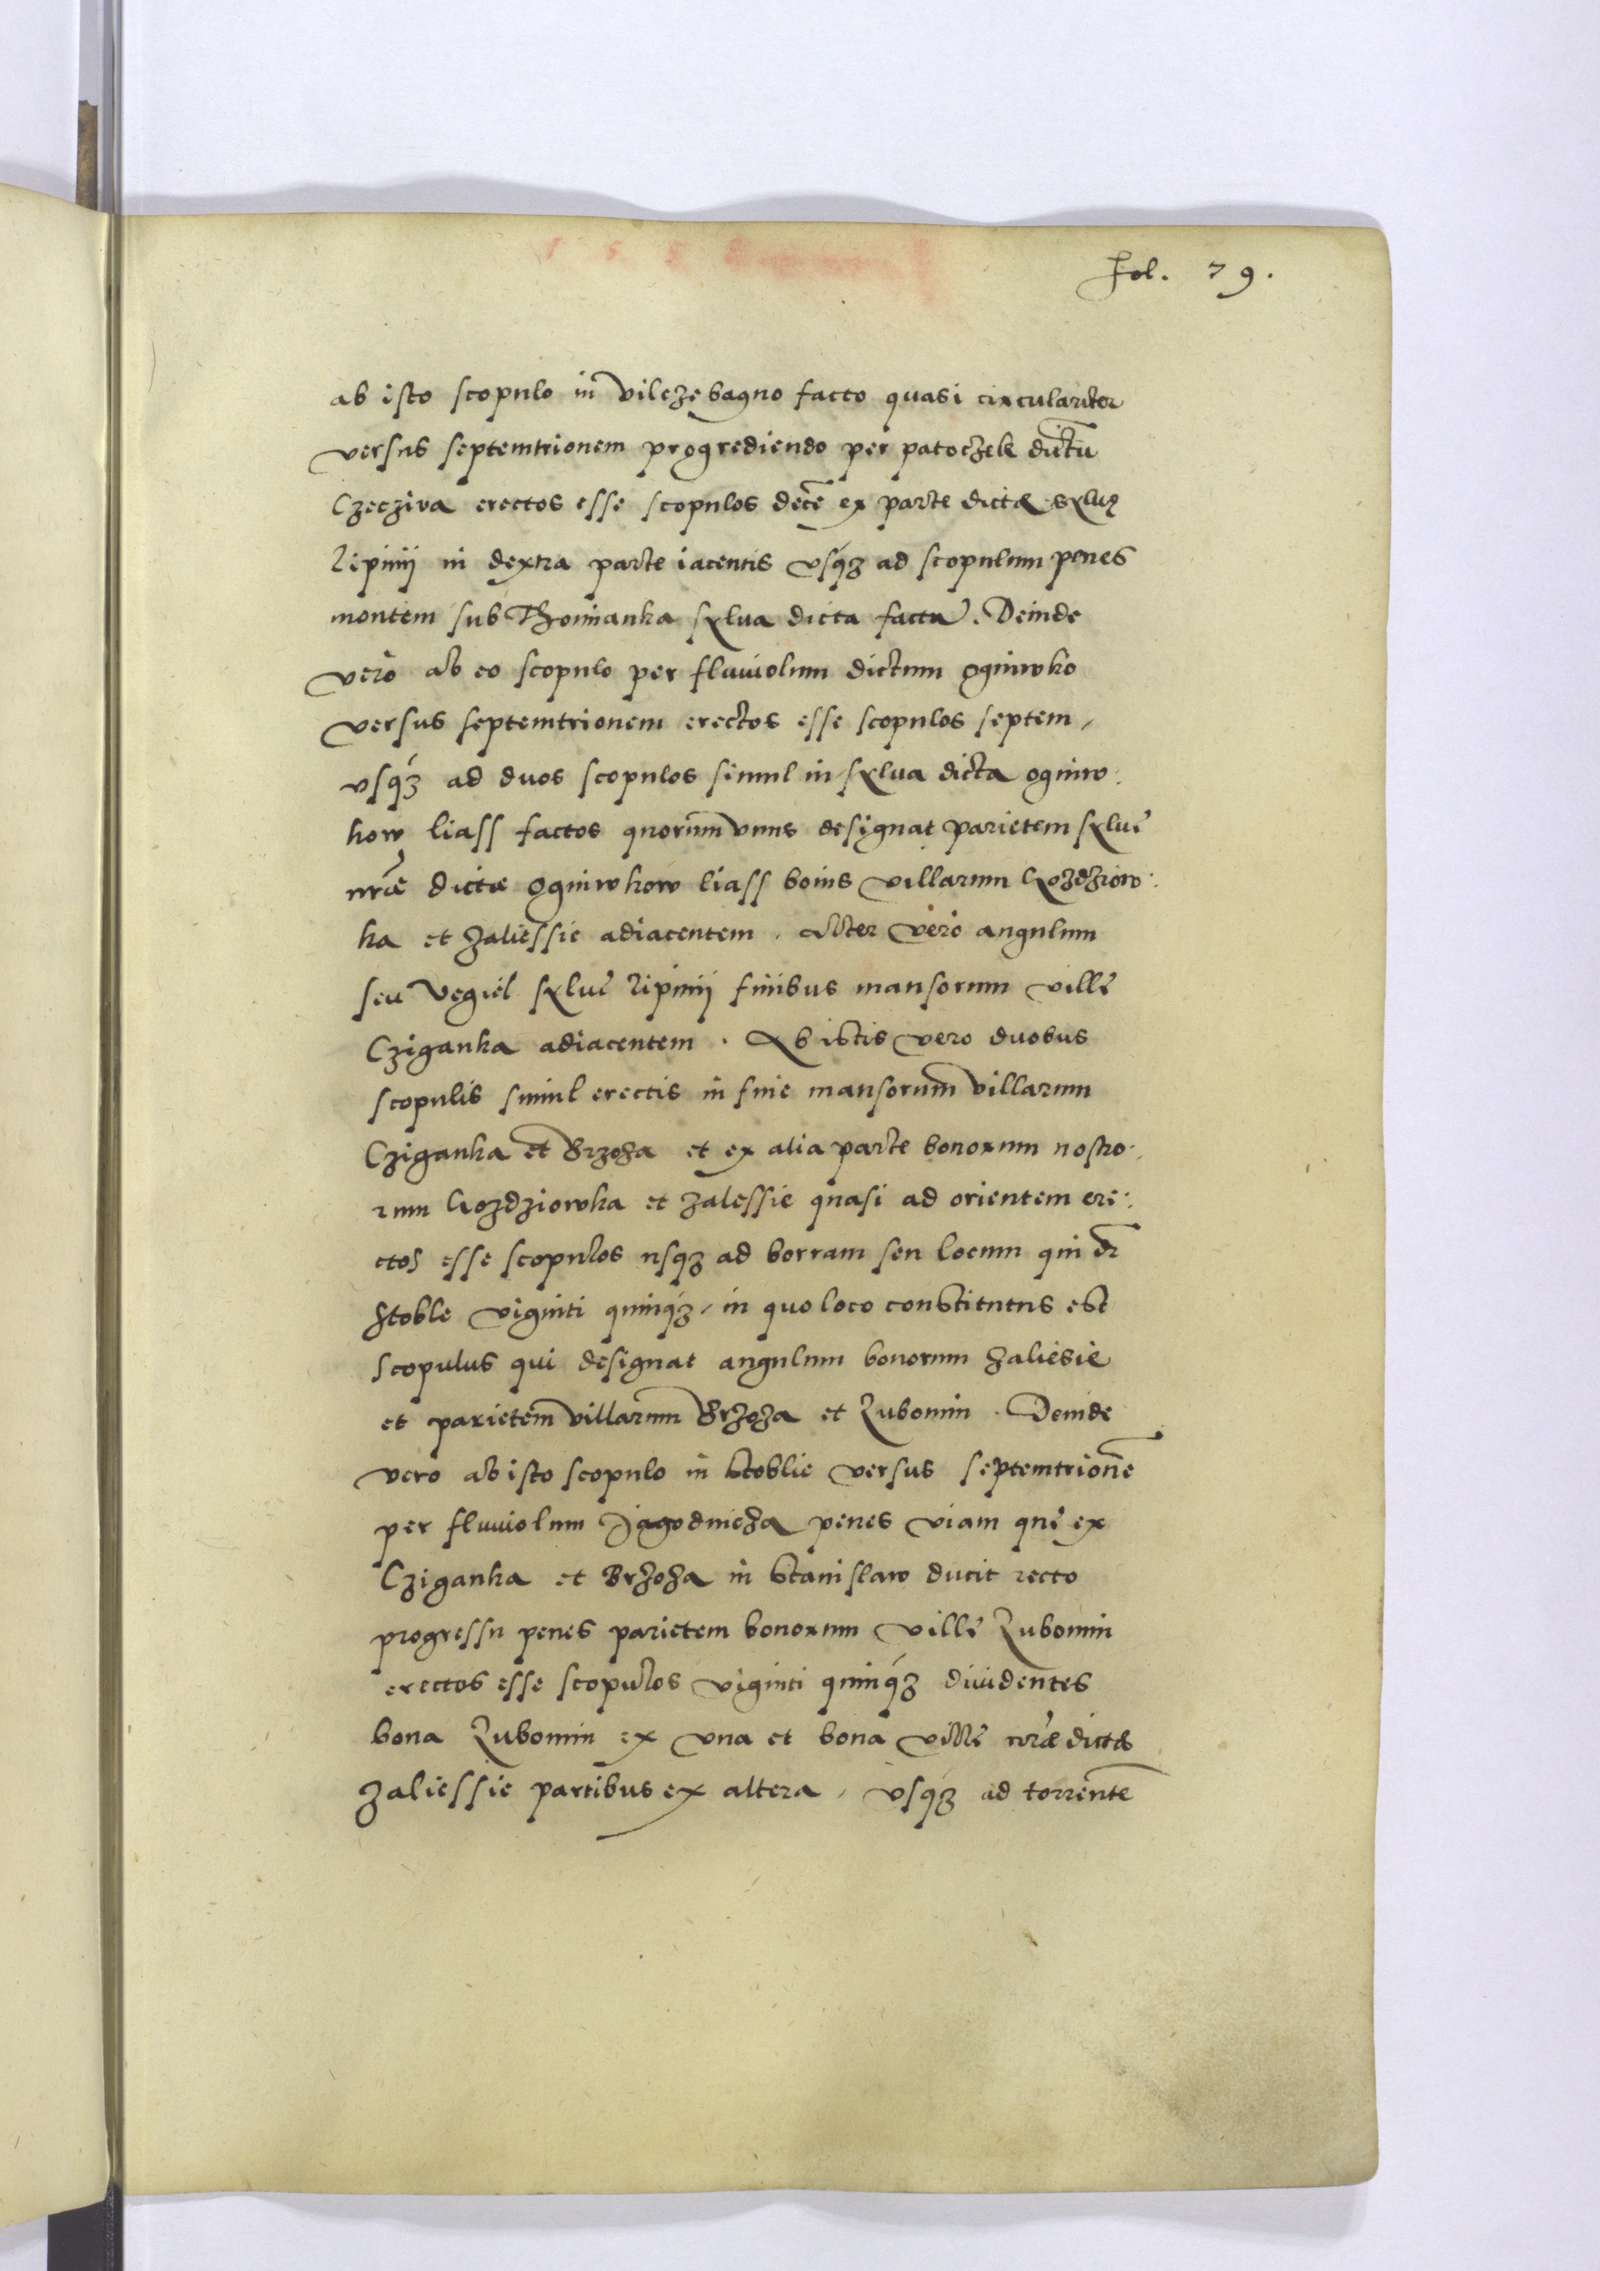 Fol. 79.
ab isto scopulo in Vilczebagno facto quasi circulariter
versus septemtrionem progrediendo per patoczek dictū
Czecziva erectos esse scopulos decē ex parte dictæ sylvę
Lipinij in dextra parte iacentis usq́ꝫ ad scopulum penes
montem sub Thomanka sylva dicta factū. Deinde
vero ab eo scopulo per fluviolum dictum Ogniwko
versus septemtrionem erectos esse scopulos septem,
usq́ꝫ ad duos scopulos simul in sylva dicta ogniw:
kow liass factos quorum unus designat parietem sylvę
nr̃æ dictæ Ogniwkow liass bonis villarum Gozdziow:
ka et Zaliessie adiacentem. Alter vero angulum
seu Vegiel sylvę Lipinij finibus mansorum villę
Cziganka adiacentem. Ab istis vero duobus
scopulis simul erectis in fine mansorum villarum
Cziganka et Brzoza et ex alia parte bonorum nostro:
rum Gozdziowka et Zalessie quasi ad orientem ere:
ctos esse scopulos usqꝫ ad borram seu locum qui dr̃
Stoble viginti quinq́ꝫ, in quo loco constitutus est
Scopulus qui designat angulum bonorum Zaliesie
et parietem villarum Brzoza et Lubomin. Deinde
vero ab isto scopulo in Stoblie versus septemtrionē
per fluviolum Jagodnicza penes viam quę ex
Cziganka et Brzoza in Stanislaw ducit recto
progressu penes parietem bonorum villę Lubomin
erectos esse scopulos viginti quinq́ꝫ dividentes
bona Lubomin ex una et bona villę nr̃æ dictæ
Zaliessie partibus ex altera, usq́ꝫ ad torrentē